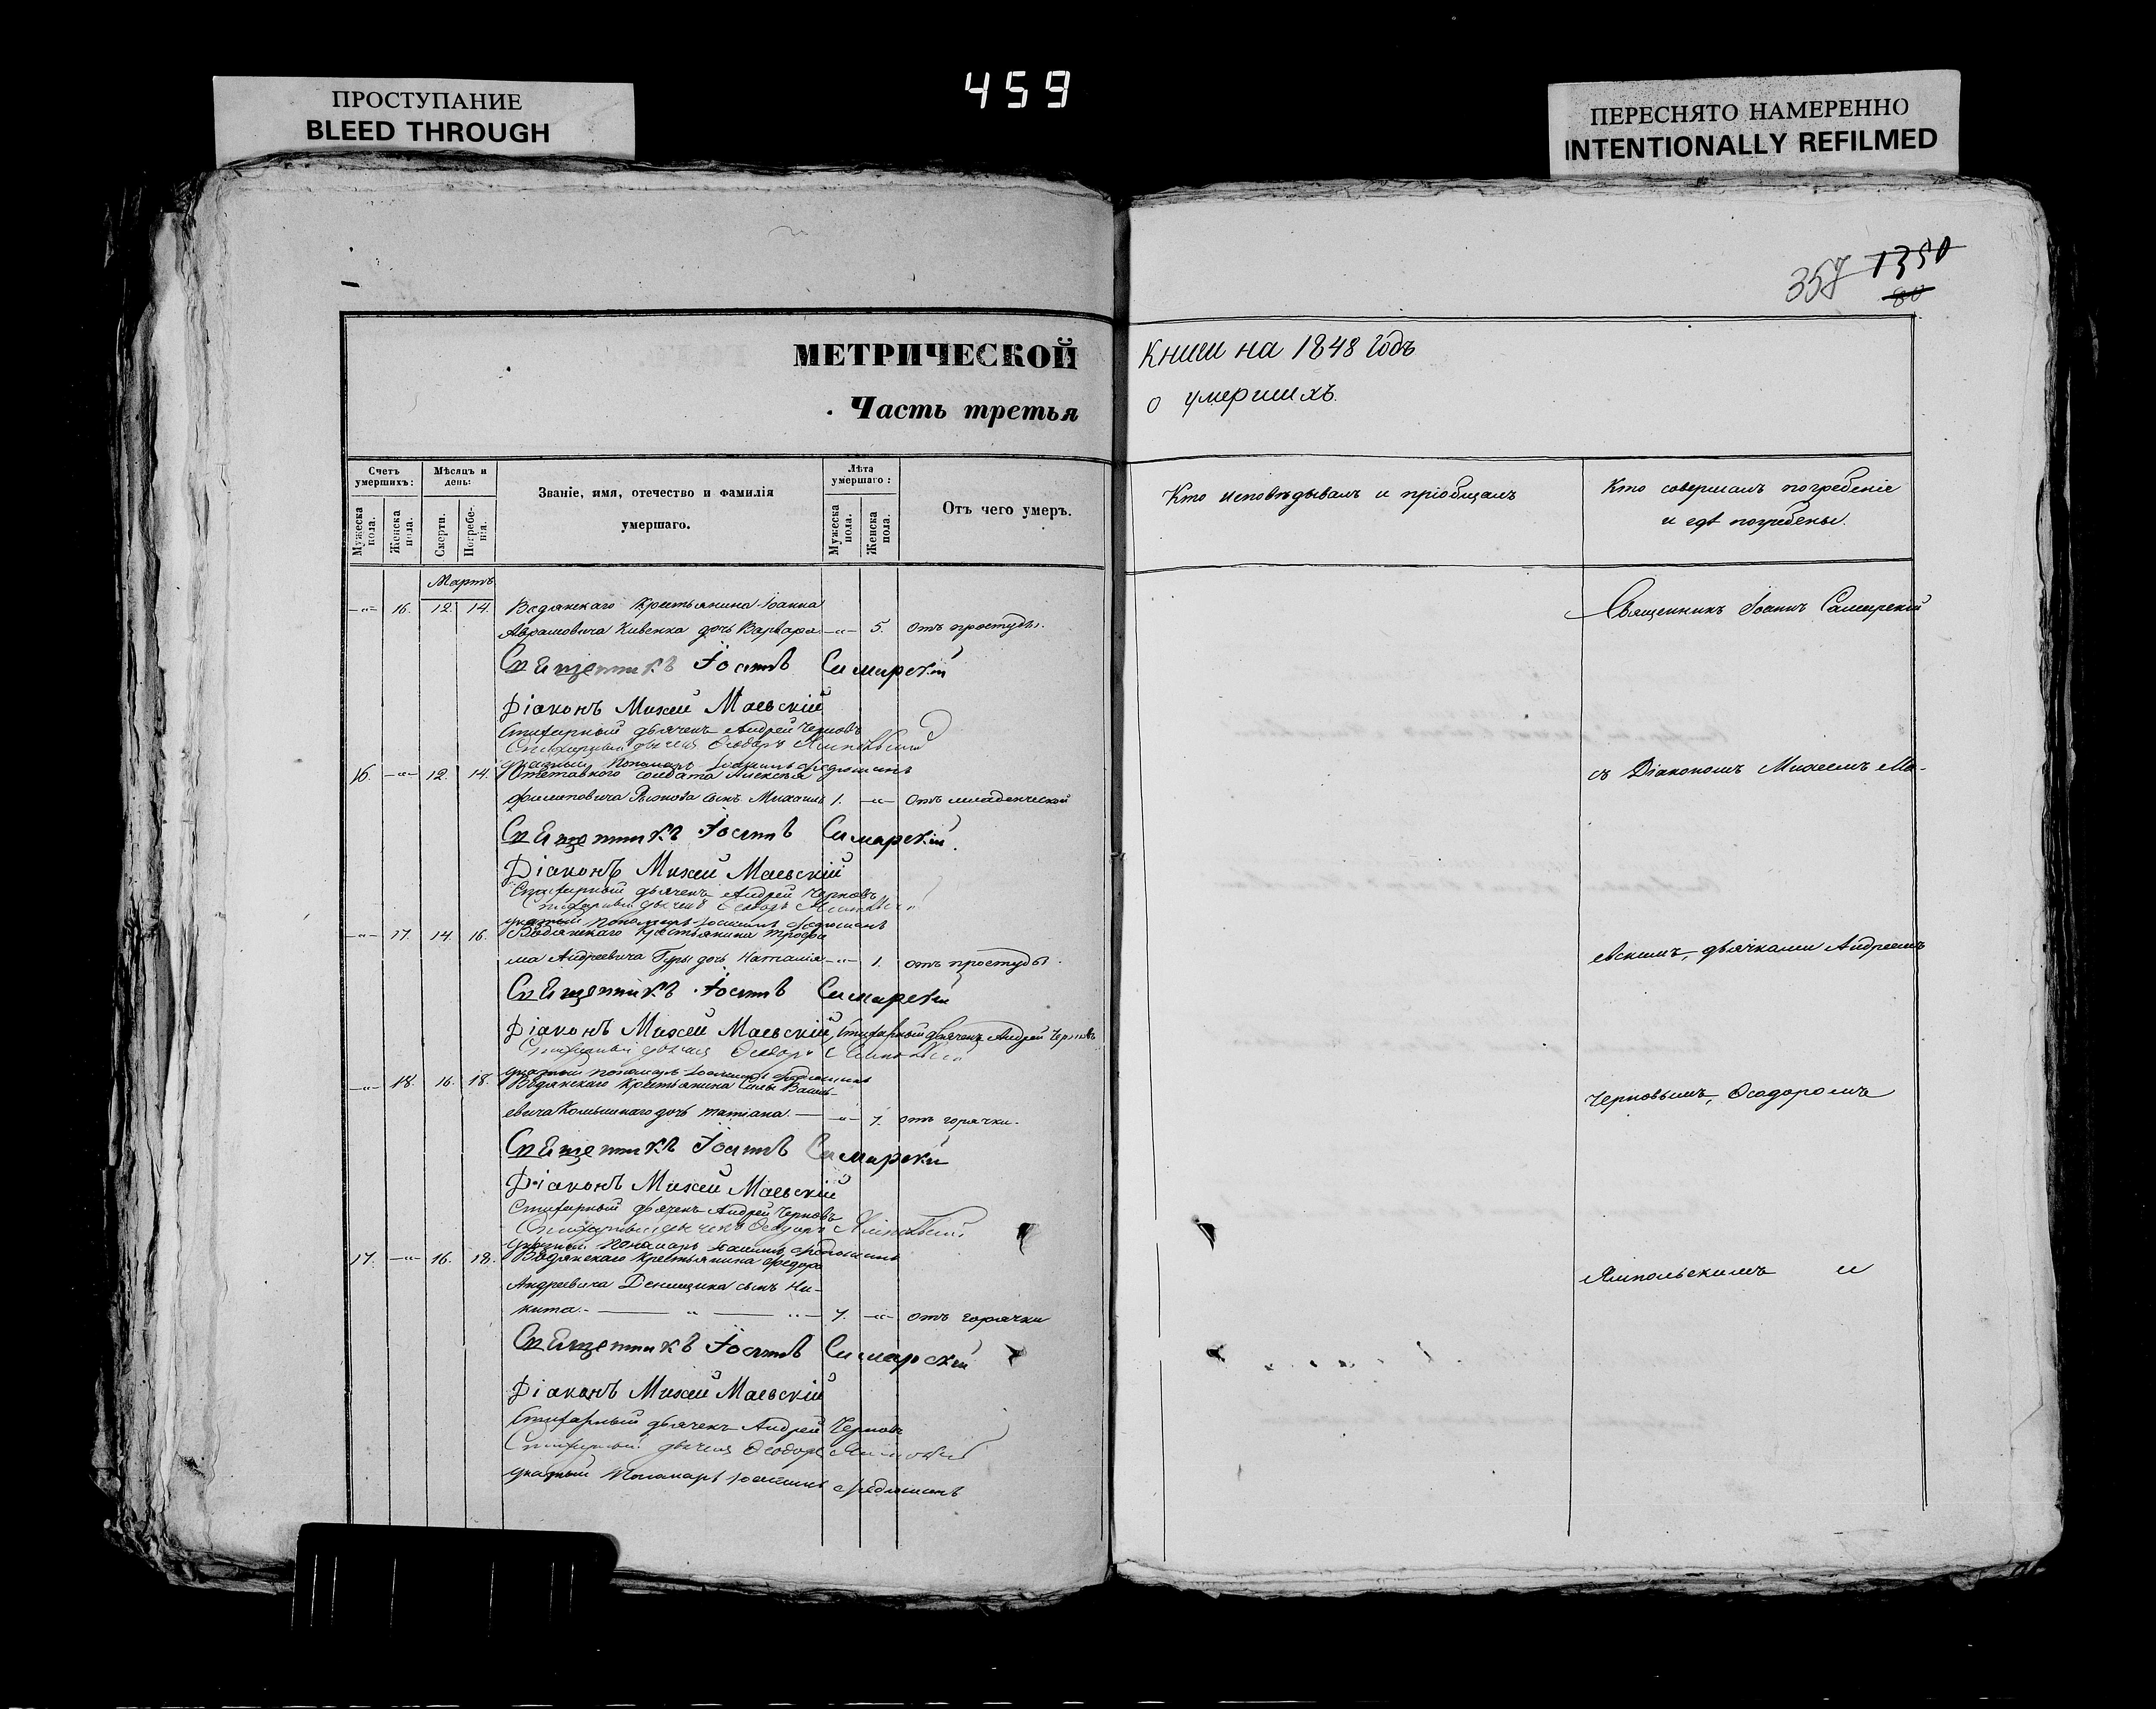 459
ПРОСТУПАНИЕ
BLEED THROUGH
ПЕРЕСНЯТО НАМЕРЕННО
INTENTIONALLY REFILMED
357 1350
80
МЕТРИЧЕСКОЙ
Часть третья
Книги на 1848 годъ
о умершихъ.
Счетъ умершихъ:
Мужеска пола.
Женска пола.
Мѣсяцъ и день:
Смерти.
Погребенія.
Званіе, имя, отечество и фамилія
умершаго.
Лѣта умершаго:
Мужеска пола.
Женска пола.
Отъ чего умеръ.
Кто исповѣдывалъ и пріобщалъ
Кто совершалъ погребеніе
и гдѣ погребены.
Мартъ
-"- 16. 12. 14. Водянскаго Крестьянина Іоанна
Аврамовича Кивенка дочь Варвара -"- 5. отъ простуды.
Священникъ Іоаннъ Самарскій
Діаконъ Михей Маевскій
Стихарный дьячекъ Андрей Черновъ
Стихарный дьячекъ Ѳеодоръ Ямпольскій
указный Пономарь
16. -"- 12. 14. Отставного солдата Алексѣя
Филиповича сынъ Михаилъ 1. -"- отъ младенческой
Священникъ Іоаннъ Самарскій.
Діаконъ Михей Маевскій
Стихарный дьячекъ Андрей Черновъ
Стихарный дьячекъ Ѳеодоръ Ямпольскій
указный пономарь
-"- 17. 14. 16. Водянскаго Крестьянина Трофи
ма Андреевича Гуры дочь Наталія -"- 1. отъ простуды.
Священникъ Іоаннъ Самарскій
Діаконъ Михей Маевскій Стихарный дьячекъ Андрей Черновъ
Стихарный дьячекъ Ѳеодоръ Ямпольскій
указный пономарь
-"- 18. 16. 18. Водянскаго Крестьянина Силы Василь-
евича дочь Татіана. -"- 7. отъ горячки.
Священникъ Іоаннъ Самарскій
Діаконъ Михей Маевскій
Стихарный дьячекъ Андрей Черновъ
Стихарный дьячекъ Ѳеодоръ Ямпольскій
указный Пономарь
17. -"- 16. 18. Водянскаго Крестьянина Федора
Андреевича Денищика сынъ Ни-
кита. 7. -"- отъ горячки
Священникъ Іоаннъ Самарскій
Діаконъ Михей Маевскій
Стихарный дьячекъ Андрей Черновъ
Стихарный дьячекъ Ѳеодоръ Ямпольскій
указный Пономарь
Священникъ Іоаннъ Самарскій
съ Діакономъ Михеемъ Ма-
евскимъ, дьячками Андреемъ
Черновымъ, Ѳеодоромъ
Ямпольскимъ и